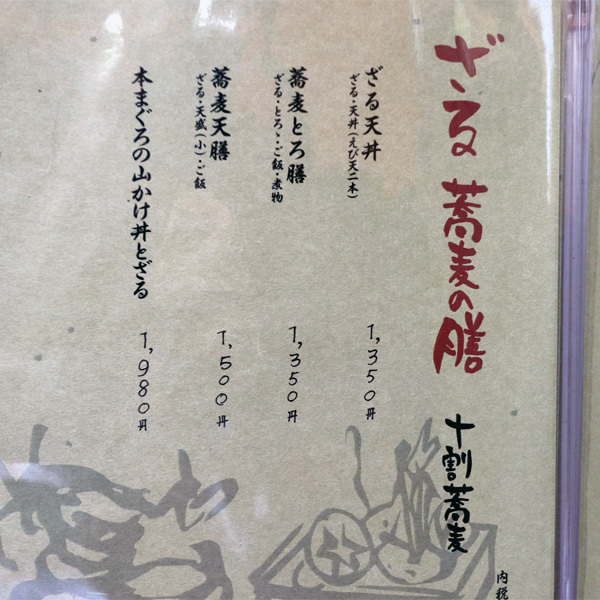 ざる蕎麦の膳 十割蕎麦
ざる天丼
ざる・天丼(えび天二本)
1,350円
蕎麦とろ膳
ざる・とろゝ・ご飯・煮物
1,350円
蕎麦天膳
ざる・天盛(小)・ご飯
1,500円
本まぐろの山かけ丼とざる
1,980円
内税